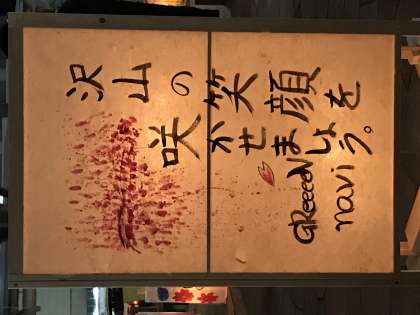 沢山の笑顔を
咲かせましょう。
GReeeeN
navi